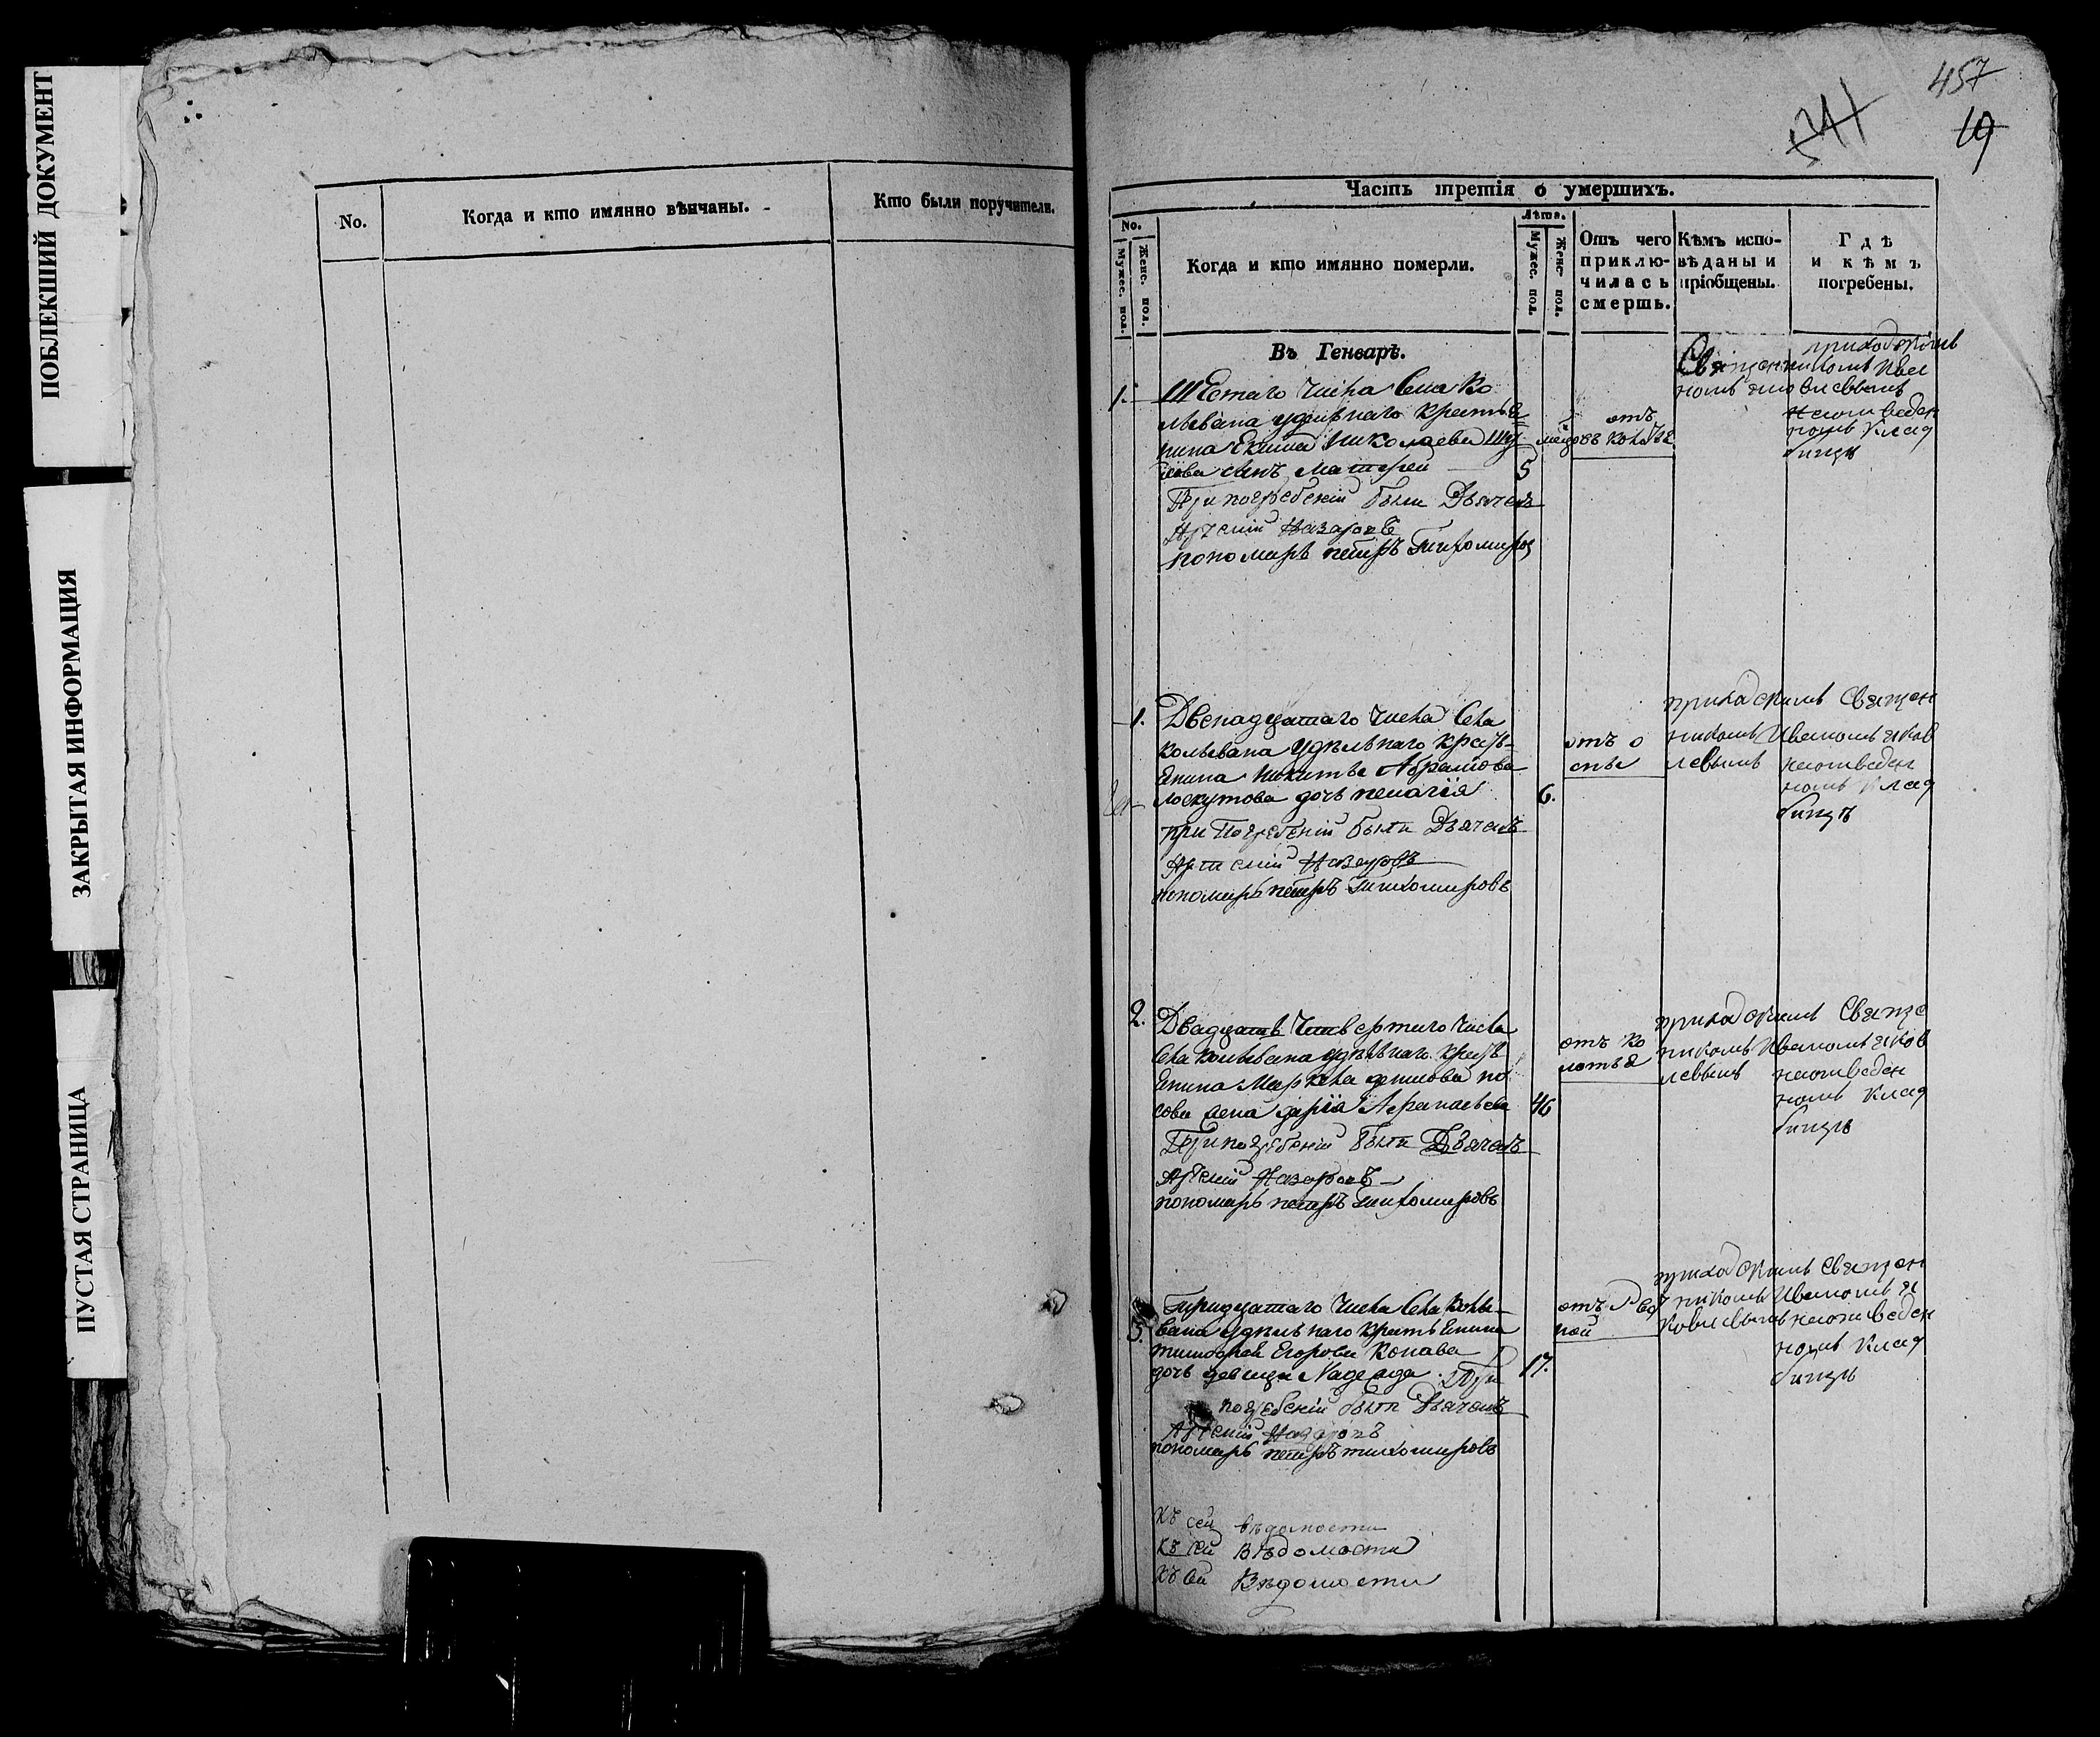 ПОБЛЕКШИЙ ДОКУМЕНТ
ЗАКРЫТАЯ ИНФОРМАЦИЯ
ПУСТАЯ СТРАНИЦА
No.
Когда и кто имянно вѣнчаны.
Кто были поручители.
457
541
19
Часть третія о умершихъ.
No.
Мужес. пол.
Женс. пол.
Когда и кто имянно померли.
Лѣта.
Мужес. пол.
Женс. пол.
Отъ чего
приклю-
чилась
смерть.
Кѣмъ испо-
вѣданы и
пріобщены.
Гдѣ
и кѣмъ
погребены.
Въ Генварѣ.
1.
Шестаго числа Села Ко
лывана удѣльнаго крестья
нина Николаева
сынъ
5
При погребеніи были Дьячекъ
Арсеній Назаровъ
пономарь петръ тихомиров
отъ
приходскимъ
Священникомъ Ива
номъ яковлевымъ
наотведен
номъ клад
бищѣ
1.
Двенадцатаго числа Села
Колывана Удѣльнаго кресть-
янина Никиты Абрамова
Лоскутова дочь пелагія
6.
при Погребеніи были Дьячекъ
Арсеній Назаровъ
пономарь петръ тихомировъ
отъ о
спы
приходскимъ Священ
никомъ Иваномъ яков
левымъ наотведен
номъ клад
бищѣ
2.
Двадцать четвертаго числа
Села Колывана удѣльнаго кресть
янина
сова жена дарія Афанасьева
46
При погребеніи были Дьячекъ
Арсеній Назаровъ
пономарь петръ тихомировъ
отъ ко
лотья
приходскимъ Священ
никомъ Иваномъ яков
левымъ наотведен
номъ клад
бищѣ
3.
Тридцатаго числа Села Колы-
вана удѣльнаго крестьянина
тимофея Егорова Конава
дочь девица Надежда При
17.
погребеніи были Дьячекъ
Арсеній Назаровъ
пономарь петръ тихомировъ
отъ
приходскимъ Священ
никомъ Иваномъ я
ковлевымъ наотведен
номъ клад
бищѣ
Къ сей вѣдомости
Къ сей Вѣдомости
Къ сей Вѣдомости